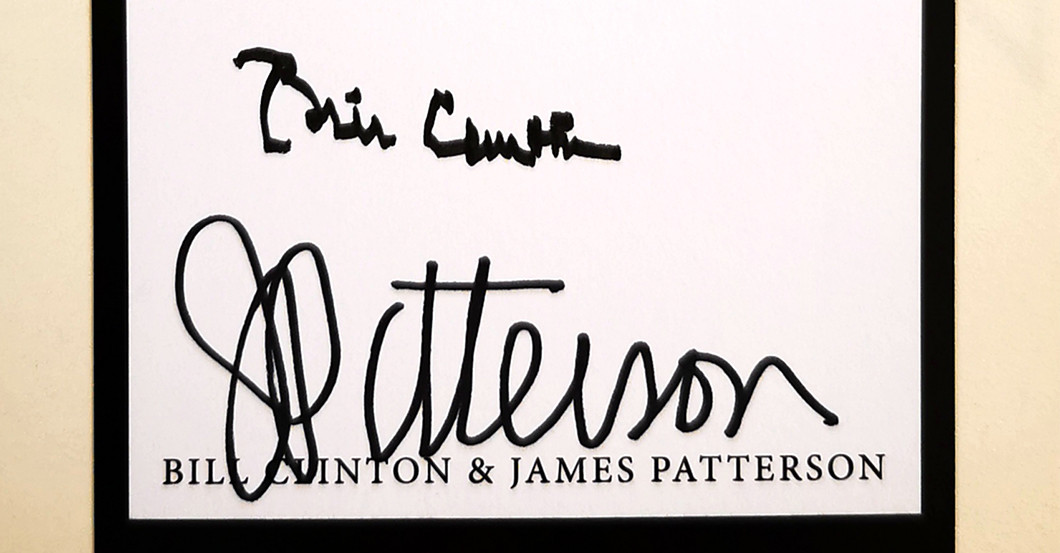 Bill Clinton
JPatterson
BILL CLINTON & JAMES PATTERSON